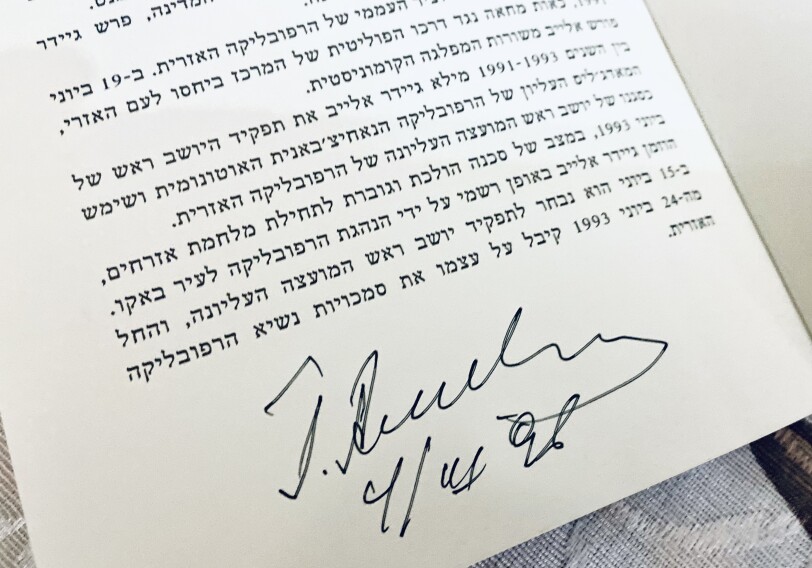 המדינה, פרש גיידר
העממי של הרפובליקה האזרית. ב-19 ביוני
1991, כאות מחאה נגד דרכו הפוליטית של המרכז ביחסו לעם האזרי,
פורש אלייב משורות המפלגה הקומוניסטית.
בין השנים 1991-1993 מילא גיידר אלייב את תפקיד היושב ראש של
המאדג'ליס העליון של הרפובליקה הנאחיצ'באנית האוטונומית ושימש
כסגנו של יושב ראש המועצה העליונה של הרפובליקה האזרית.
ביוני 1993, במצב של סכנה הולכת וגוברת לתחילת מלחמת אזרחים,
הוזמן גיידר אלייב באופן רשמי על ידי הנהגת הרפובליקה לעיר באקו.
ב-15 ביוני הוא נבחר לתפקיד יושב ראש המועצה העליונה, והחל
מה-24 ביוני 1993 קיבל על עצמו את סמכויות נשיא הרפובליקה
האזרית.